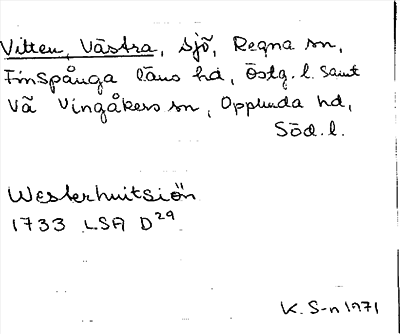 Vitten, Västra, sjö, Regna sn,
Finspånga läns hd, Östg. l. samt
Vä Vingåkers sn, Oppunda hd,
Söd. l.
Westerhuitsiön
1733 LSA D29
K. S-n 1971